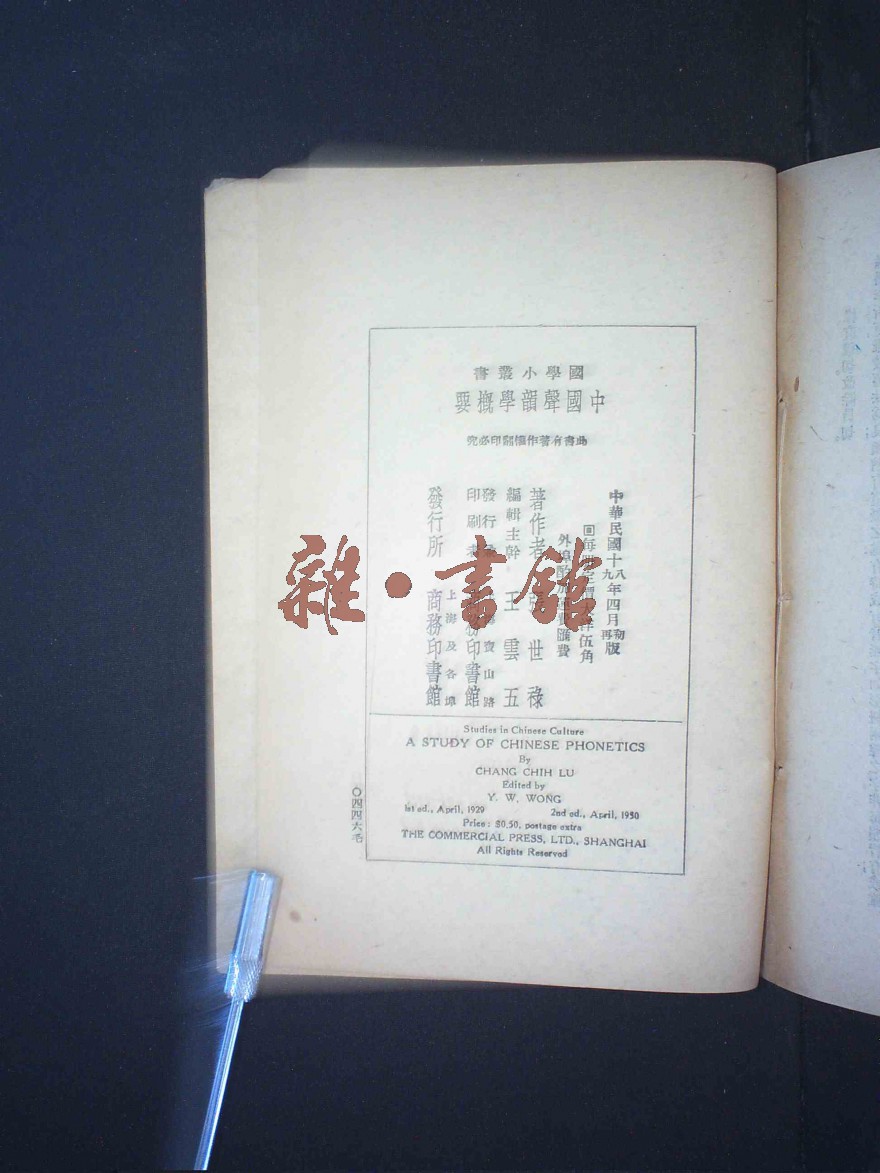 國學小叢書
中國聲韻學概要
此書有著作權翻印必究
中華民國十八年四月初版
九 再
每冊定價大洋伍角
外埠酌加運費匯費
著作者 世祿
編輯主幹 王雲五
發行 寶山路
印刷 印書館
發行所 上海及各埠
商務印書館
雜·書館
Studies in Chinese Culture
A STUDY OF CHINESE PHONETICS
By
CHANG CHIH LU
Edited by
Y. W. WONG
1st ed., April, 1929 2nd ed., April, 1930
Price: $0.50, postage extra
THE COMMERCIAL PRESS, LTD., SHANGHAI
All Rights Reserved
〇四四六毛